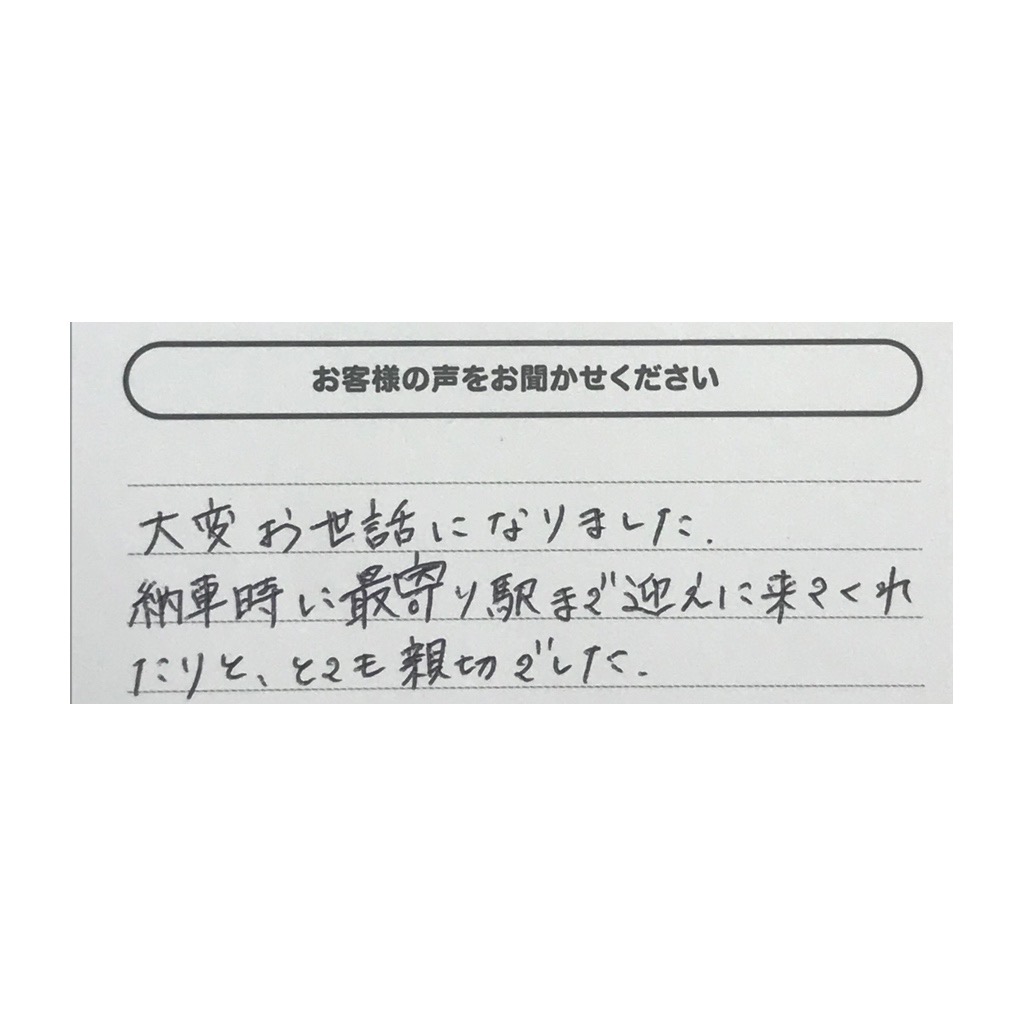 お客様の声をお聞かせください
大変お世話になりました.
納車時に最寄り駅まで迎えに来てくれ
たりと、とても親切でした.